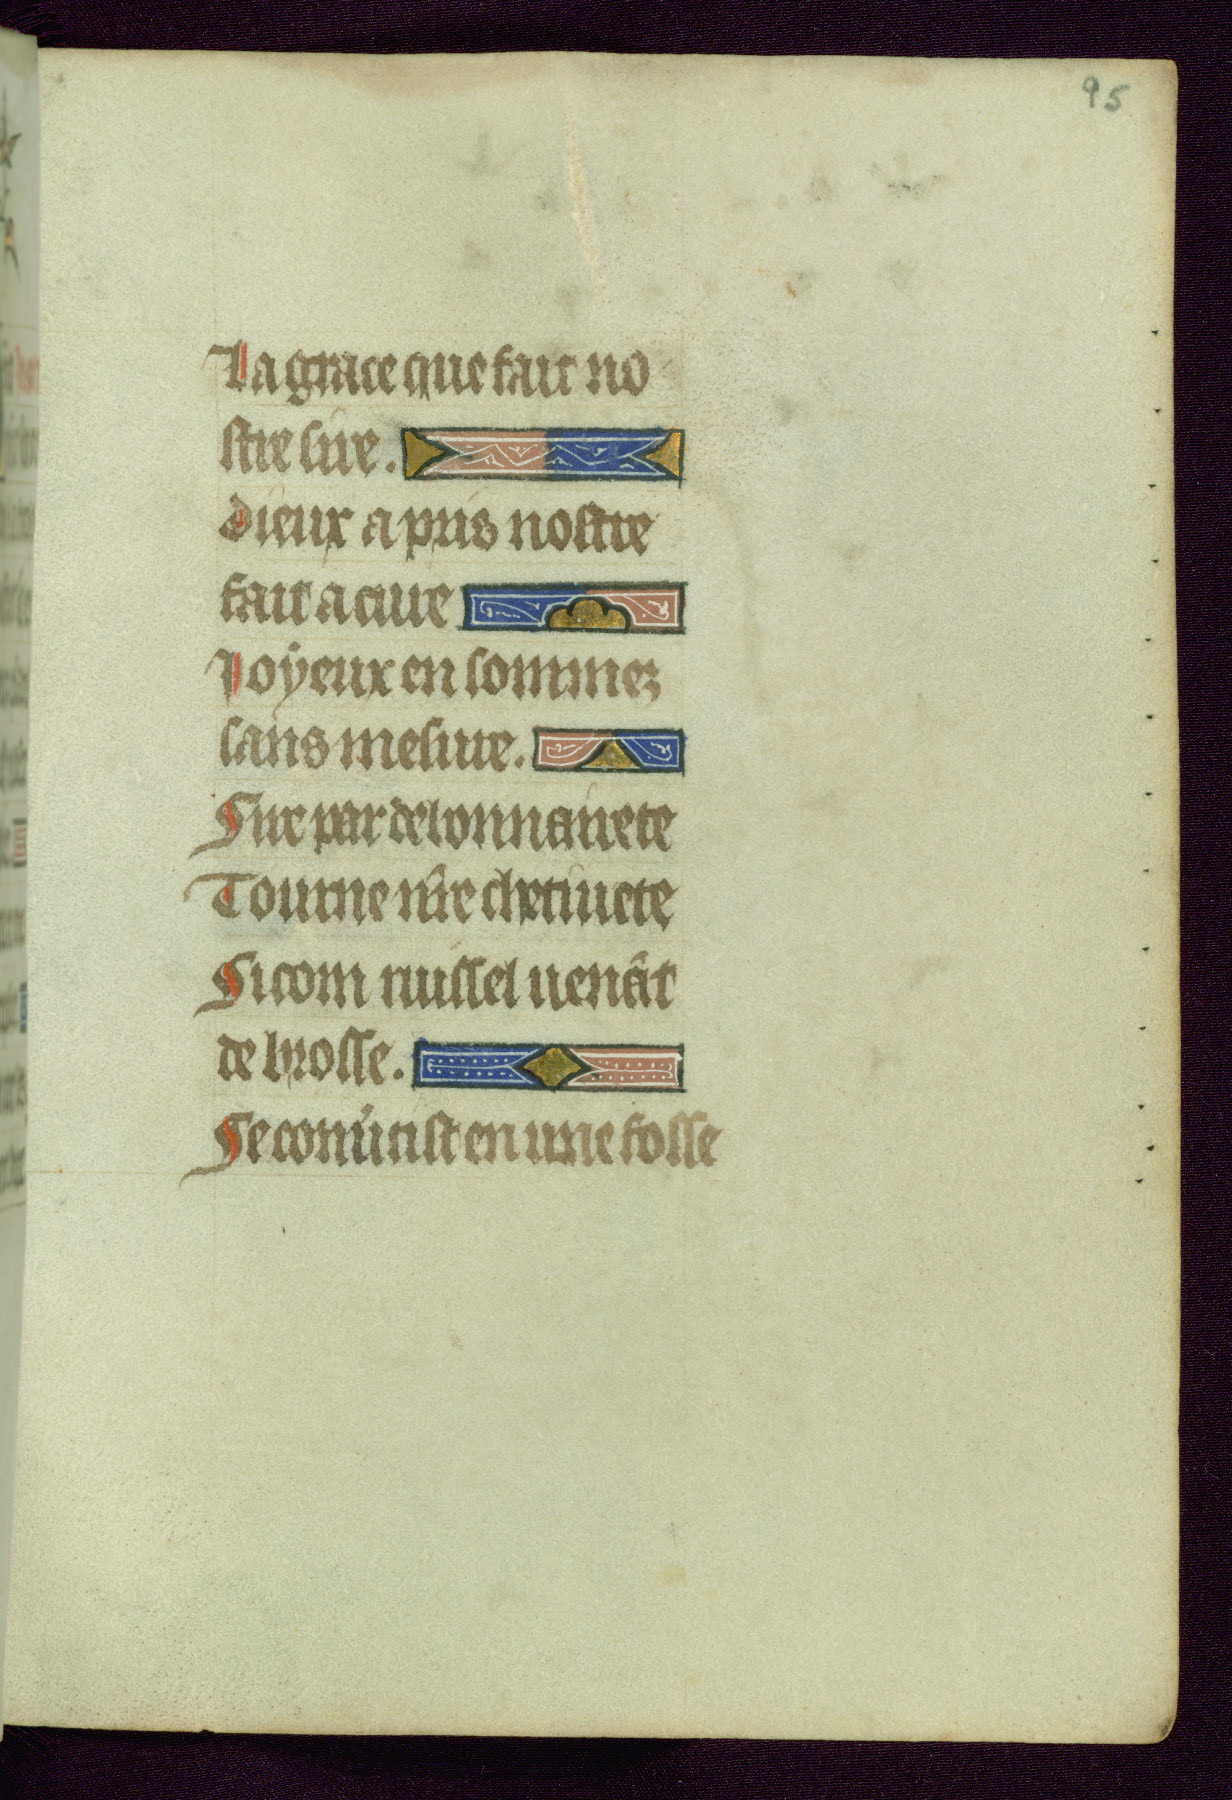 95
La grace que fait no
stre sire.
Dieux a pris nostre
fait a cure
Joÿeux en sommez
sans mesure.
Sire par de bonnairete
Tourne nr̄e chetiuete
Si com ruissel uenāt
de brosse.
Se conuertist en une fosse